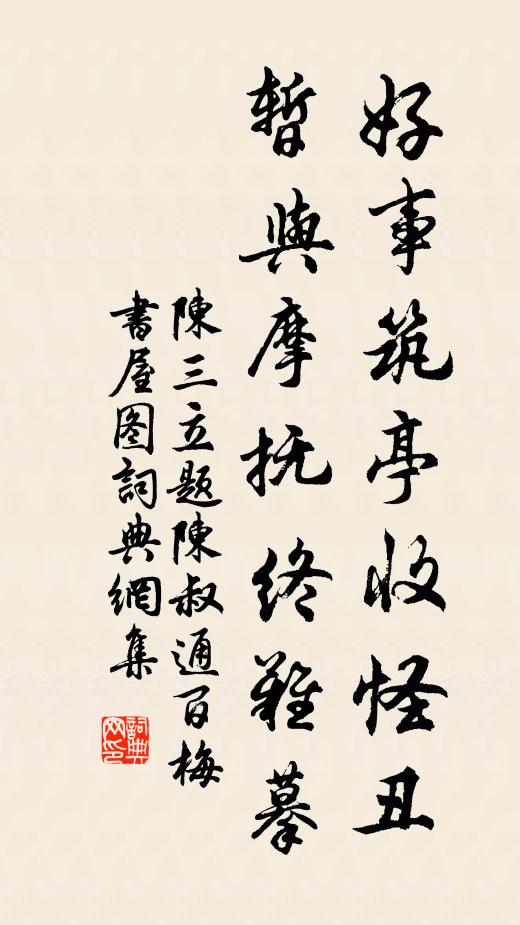 好事筑亭收怪丑
暫與摩抚终難摹
陳三立題陳叔通百梅
書屋图詞典網集
詞典网印